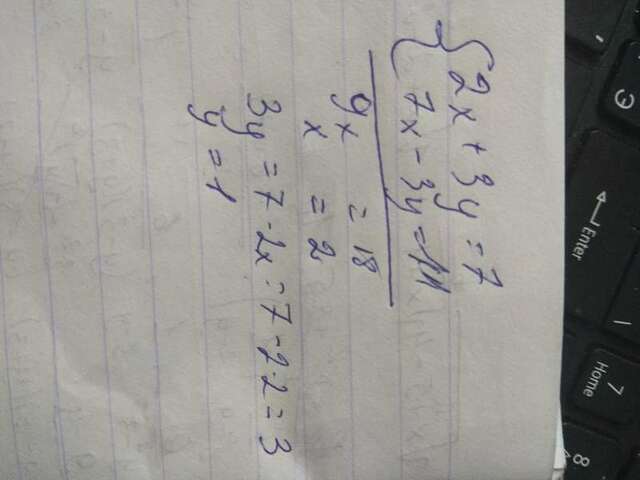 2x + 3y = 7
7x - 3y = 11
9x = 18
x = 2
3y = 7 - 2x = 7 - 2·2 = 3
y = 1
Э
Enter
7
Home
8